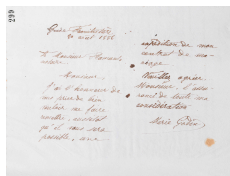 299
20 août 1886
à Monsieur
Monsieur,
J'ai l'honneur de
vous prier de bien
vouloir me faire
aussitôt
qu'il vous sera
possible, une
expédition de mon
contrat de ma-
riage.
Veuillez agréer,
Monsieur, l'assu-
rance de toute ma
considération
Marie